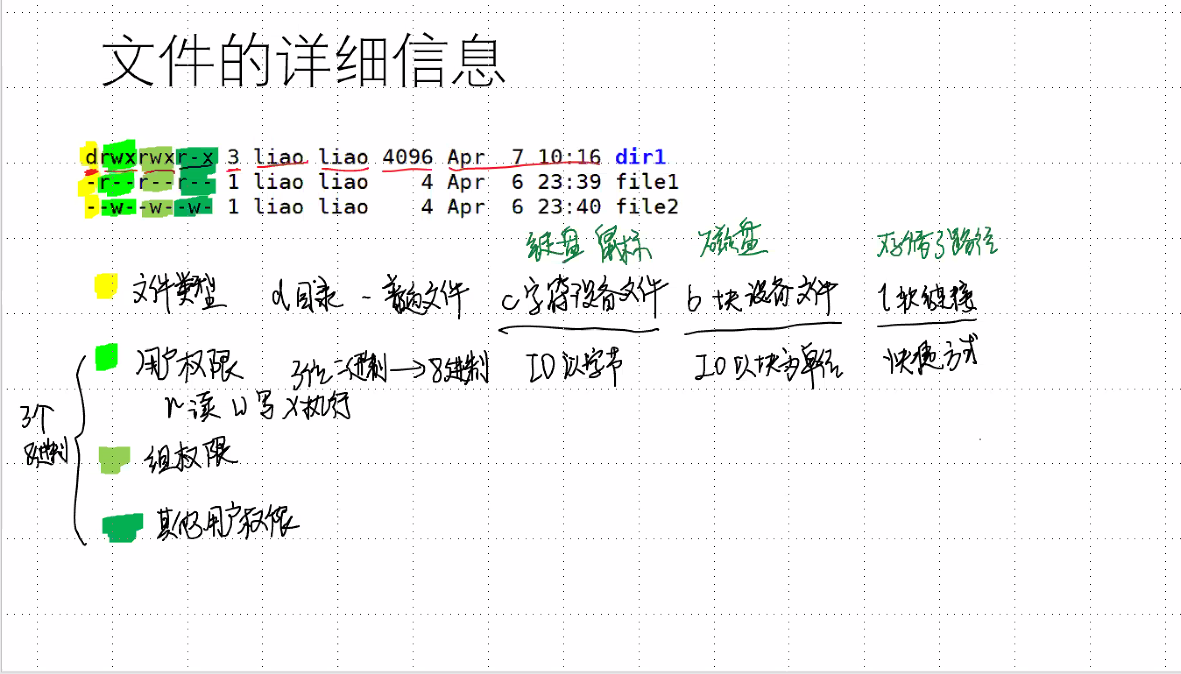 文件的详细信息
drwxrwxr-x 3 liao liao 4096 Apr  7 10:16 dir1
-r--r--r-- 1 liao liao    4 Apr  6 23:39 file1
--w--w--w- 1 liao liao    4 Apr  6 23:40 file2
键盘 鼠标 磁盘 存储了路径
文件类型 d目录 - 普通文件 c字符设备文件 b 块设备文件 l软链接
用户权限 3位二进制→8进制 IO以字节 IO以块为单位 快捷方式
r读 w写 x执行
3个
8进制
组权限
其他用户权限